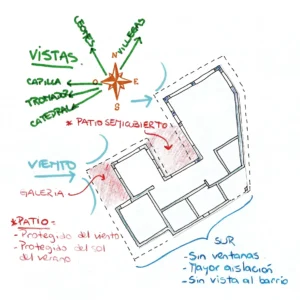 VILLEGAS
VISTAS
N
CAPILLA
O
E
CATEDRAL
S
* PATIO SEMIABIERTO
VIENTO
GALERIA
* PATIO:
- Protegido del viento
- Protegido del sol
del verano
SUR
- Sin ventanas
- Mayor aislación
- Sin vista al barrio